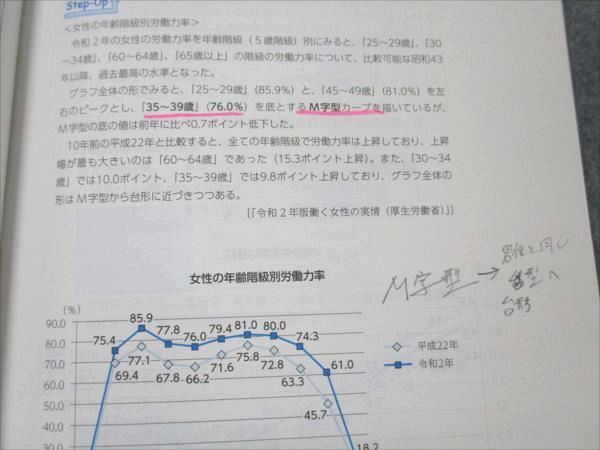 Step-Up
＜女性の年齢階級別労働力率＞
令和２年の女性の労働力率を年齢階級（５歳階級）別にみると、「25～29歳」、「30
～34歳」、「60～64歳」、「65歳以上」の階級の労働力率について、比較可能な昭和43
年以降、過去最高の水準となった。
グラフ全体の形でみると、「25～29歳」（85.9%）と、「45～49歳」（81.0%）を左
右のピークとし、「35～39歳」（76.0%）を底とするＭ字型カーブを描いているが、
Ｍ字型の底の値は前年に比べ0.7ポイント低下した。
10年前の平成22年と比較すると、全ての年齢階級で労働力率は上昇しており、上昇
幅が最も大きいのは「60～64歳」であった（15.3ポイント上昇）。また、「30～34
歳」では10.0ポイント、「35～39歳」では9.8ポイント上昇しており、グラフ全体の
形はＭ字型から台形に近づきつつある。
[「令和２年版働く女性の実情（厚生労働省）」]
M字型→男性と同じ
型へ
台形
女性の年齢階級別労働力率
(%)
90.0
80.0
70.0
60.0
50.0
40.0
30.0
75.4 85.9 77.8 76.0 79.4 81.0 80.0 74.3 61.0 18.2
69.4 77.1 67.8 66.2 71.6 75.8 72.8 63.3 45.7
平成22年
令和2年